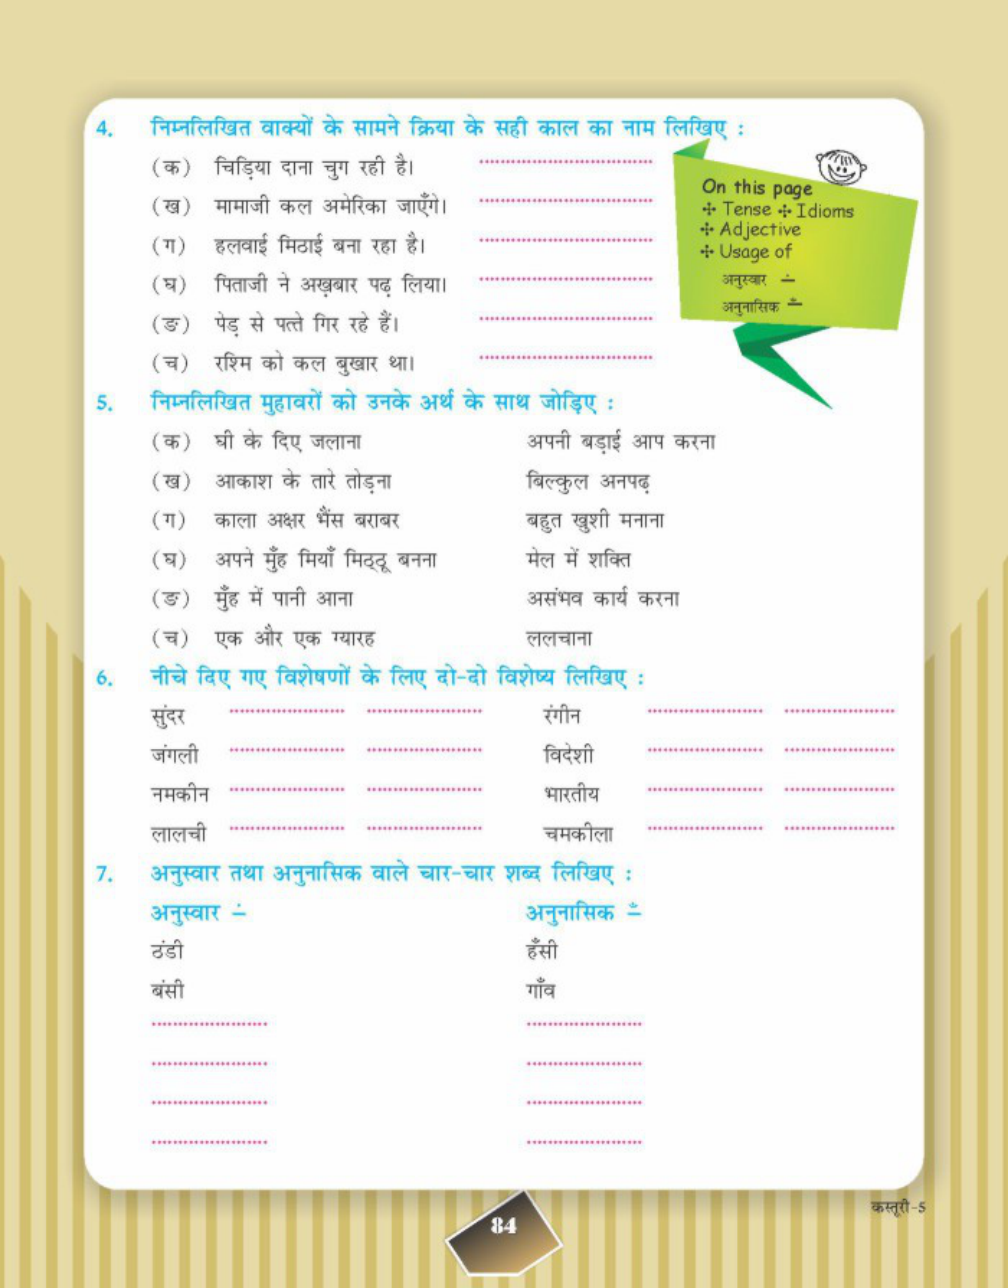 4. निम्नलिखित वाक्यों के सामने क्रिया के सही काल का नाम लिखिए :
(क) चिड़िया दाना चुग रही है।
(ख) मामाजी कल अमेरिका जाएँगे।
(ग) हलवाई मिठाई बना रहा है।
(घ) पिताजी ने अख़बार पढ़ लिया।
(ङ) पेड़ से पत्ते गिर रहे हैं।
(च) रश्मि को कल बुखार था।
On this page
✣ Tense ✣ Idioms
✣ Adjective
✣ Usage of
अनुस्वार ∸
अनुनासिक ँ
5. निम्नलिखित मुहावरों को उनके अर्थ के साथ जोड़िए :
(क) घी के दिए जलाना अपनी बड़ाई आप करना
(ख) आकाश के तारे तोड़ना बिल्कुल अनपढ़
(ग) काला अक्षर भैंस बराबर बहुत खुशी मनाना
(घ) अपने मुँह मियाँ मिठ्ठू बनना मेल में शक्ति
(ङ) मुँह में पानी आना असंभव कार्य करना
(च) एक और एक ग्यारह ललचाना
6. नीचे दिए गए विशेषणों के लिए दो-दो विशेष्य लिखिए :
सुंदर रंगीन
जंगली विदेशी
नमकीन भारतीय
लालची चमकीला
7. अनुस्वार तथा अनुनासिक वाले चार-चार शब्द लिखिए :
अनुस्वार ∸ अनुनासिक ँ
ठंडी हँसी
बंसी गाँव
84
कस्तूरी-5